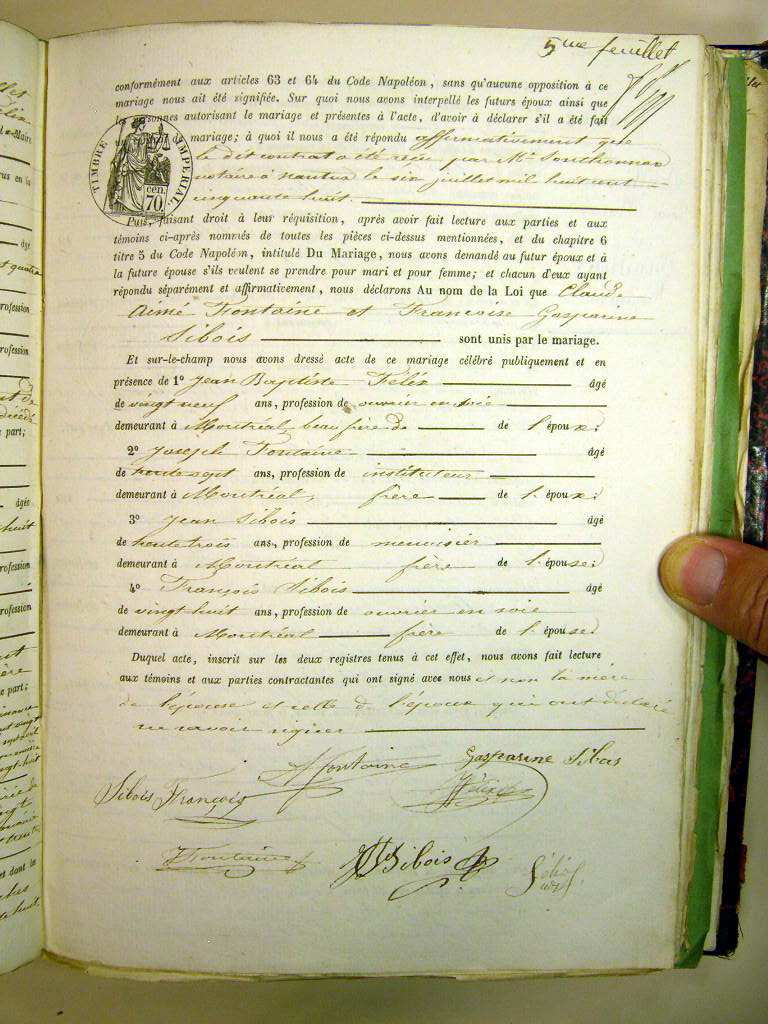 5me feuillet
conformément aux articles 63 et 64 du Code Napoléon, sans qu'aucune opposition à ce
mariage nous ait été signifiée. Sur quoi nous avons interpellé les futurs époux ainsi que
les personnes autorisant le mariage et présentes à l'acte, d'avoir à déclarer s'il a été fait
mariage; à quoi il nous a été répondu affirmativement que
le dit contrat a été reçu par Me
notaire à Nantua le six juillet mil huit cent
cinquante huit.
TIMBRE IMPÉRIAL
70 cen.
Puis, faisant droit à leur réquisition, après avoir fait lecture aux parties et aux
témoins ci-après nommés de toutes les pièces ci-dessus mentionnées, et du chapitre 6
titre 5 du Code Napoléon, intitulé Du Mariage, nous avons demandé au futur époux et à
la future épouse s'ils veulent se prendre pour mari et pour femme; et chacun d'eux ayant
répondu séparément et affirmativement, nous déclarons Au nom de la Loi que Claude
Aimé Fontaine et Françoise Gasparine
Sibois sont unis par le mariage.
Et sur-le-champ nous avons dressé acte de ce mariage célébré publiquement et en
présence de 1º Jean Baptiste Félix âgé
de vingt neuf ans, profession de ouvrier en soie
demeurant à Montréal, beau frère de de l'époux;
2º Joseph Fontaine âgé
de trente sept ans, profession de instituteur
demeurant à Montréal, frère de l'époux;
3º Jean Sibois âgé
de trente trois ans, profession de menuisier
demeurant à Montréal frère de l'épouse;
4º François Sibois âgé
de vingt huit ans, profession de ouvrier en soie
demeurant à Montréal frère de l'épouse.
Duquel acte, inscrit sur les deux registres tenus à cet effet, nous avons fait lecture
aux témoins et aux parties contractantes qui ont signé avec nous et non la mère
de l'épouse et celle de l'époux qui ont déclaré
ne savoir signer
Gasparine Sibois
A Fontaine
Sibois François
Félix
J Fontaine
Sibois